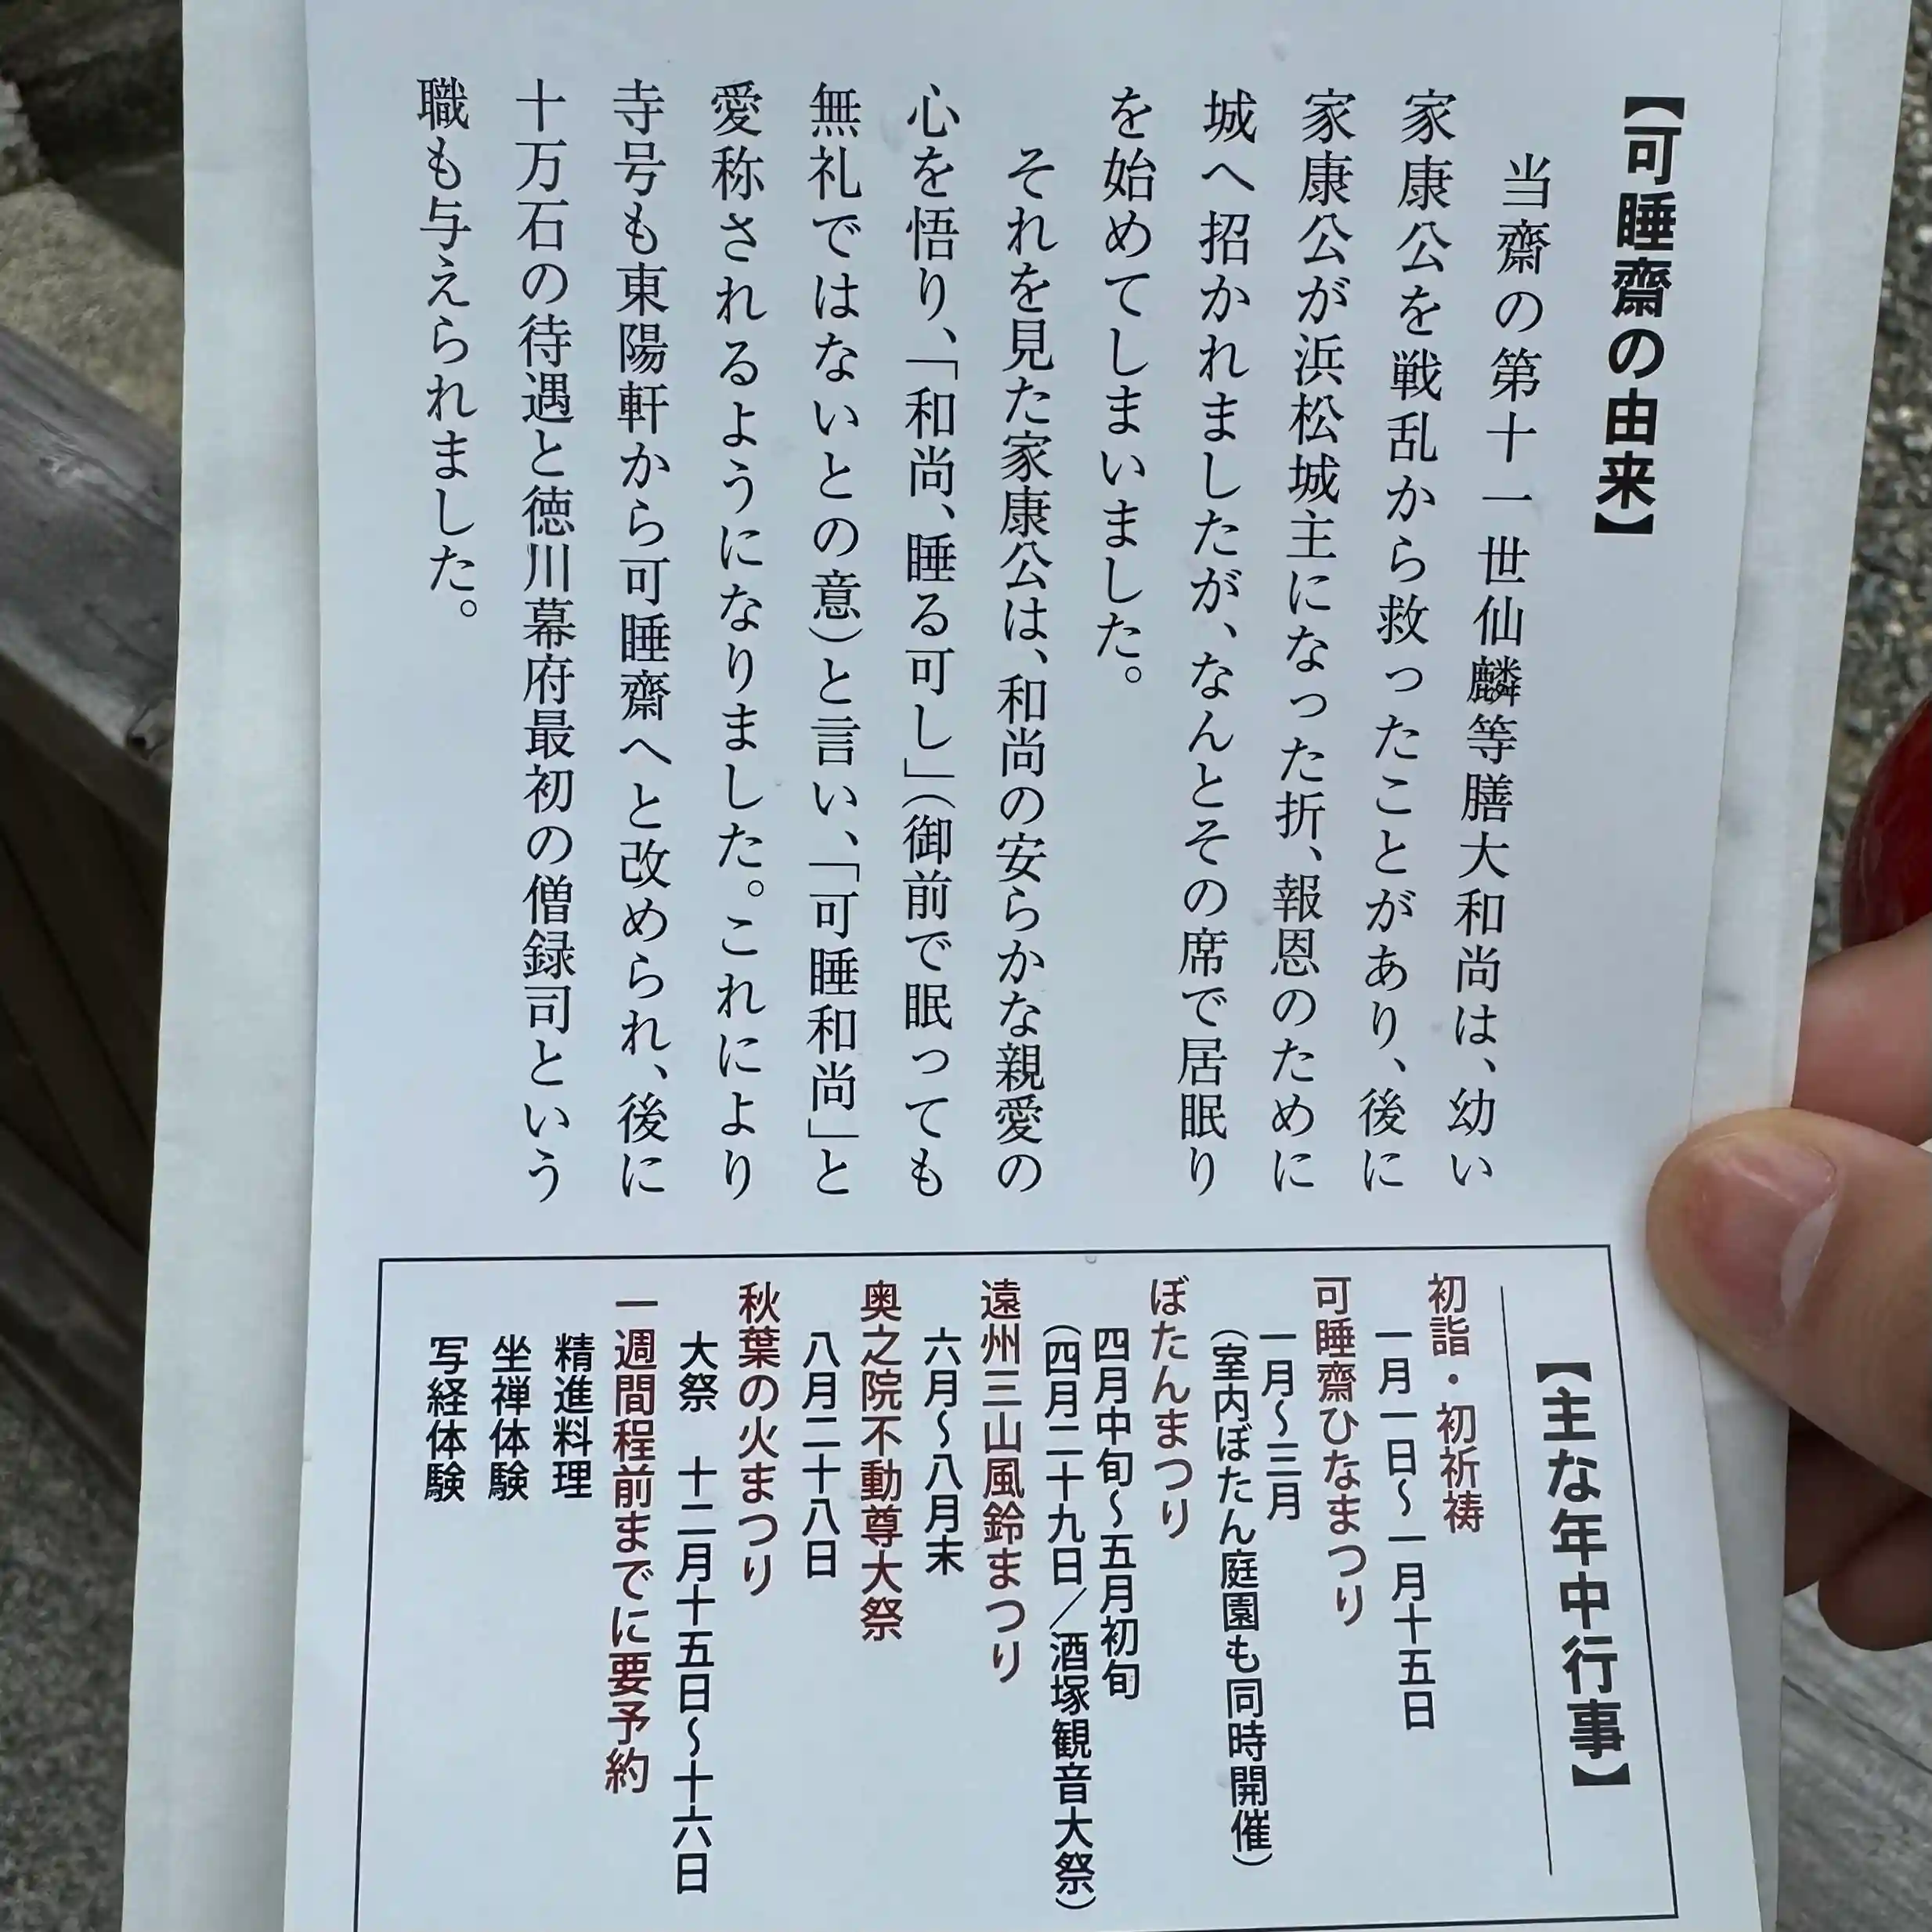 【可睡齋の由来】
当齋の第十一世仙麟等膳大和尚は、幼い
家康公を戦乱から救ったことがあり、後に
家康公が浜松城主になった折、報恩のために
城へ招かれましたが、なんとその席で居眠り
を始めてしまいました。
それを見た家康公は、和尚の安らかな親愛の
心を悟り、「和尚、睡る可し」(御前で眠っても
無礼ではないとの意)と言い、「可睡和尚」と
愛称されるようになりました。これにより
寺号も東陽軒から可睡齋へと改められ、後に
十万石の待遇と徳川幕府最初の僧録司という
職も与えられました。
【主な年中行事】
初詣・初祈祷
一月一日〜一月十五日
可睡齋ひなまつり
一月〜三月
(室内ぼたん庭園も同時開催)
ぼたんまつり
四月中旬〜五月初旬
(四月二十九日/酒塚観音大祭)
遠州三山風鈴まつり
六月〜八月末
奥之院不動尊大祭
八月二十八日
秋葉の火まつり
大祭 十二月十五日〜十六日
一週間程前までに要予約
精進料理
坐禅体験
写経体験